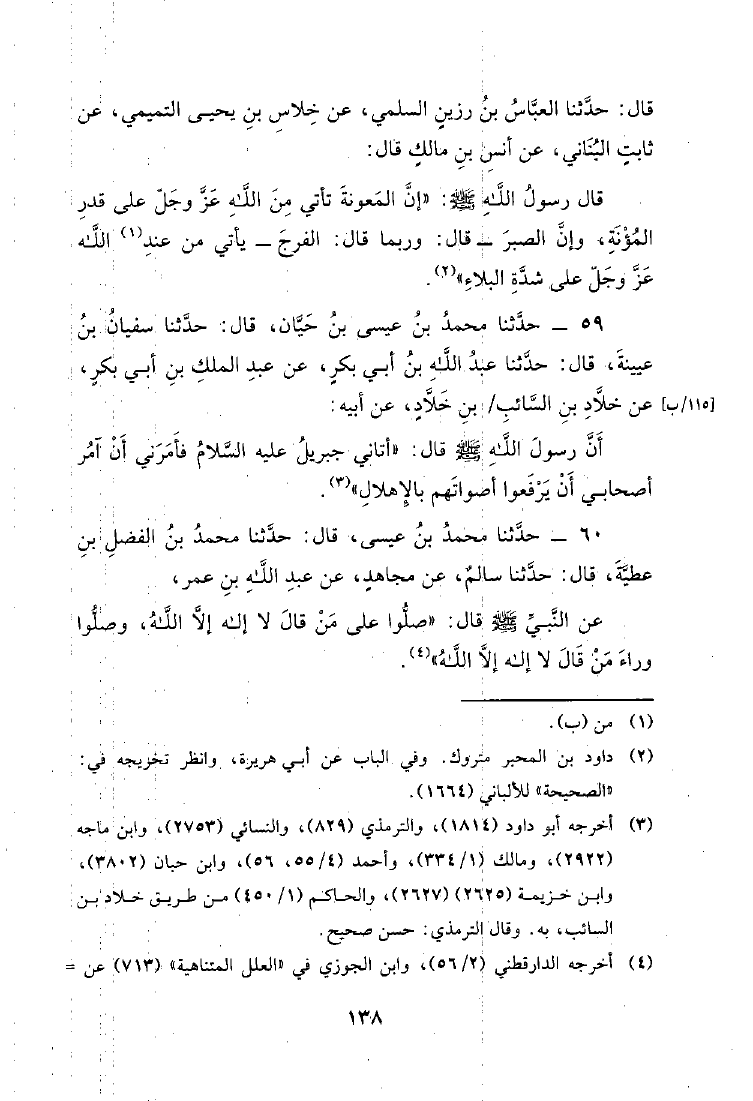 قال: حدَّثنا العبَّاسُ بنُ رزينٍ السلمي، عن خِلاسِ بنِ يحيـى التميمي، عن
ثابتٍ البُنَاني، عن أنسِ بنِ مالكٍ قال:
قال رسولُ اللَّـٰهِ ﷺ: «إنَّ المَعونةَ تأتي مِنَ اللَّـٰهِ عَزَّ وجَلّ على قدرِ
المُؤْنَةِ، وإنَّ الصبرَ ــ قال: وربما قال: الفرجَ ــ يأتي من عندِ(١) اللَّـٰه
عَزَّ وجَلّ على شدَّةِ البلاءِ»(٢).
٥٩ ــ حدَّثنا محمدُ بنُ عيسى بنُ حَيَّان، قال: حدَّثنا سفيانُ بنُ
عيينةَ، قال: حدَّثنا عبدُ اللَّـٰهِ بنُ أبي بكرٍ، عن عبدِ الملكِ بنِ أبي بكرٍ،
عن خلَّادِ بنِ السَّائبِ/ بنِ خَلَّادٍ، عن أبيه: [١١٥/ب]
أنَّ رسولَ اللَّـٰهِ ﷺ قال: «أتاني جبريلُ عليه السَّلامُ فأمَرَني أنْ آمُر
أصحابـي أنْ يَرْفَعوا أصواتَهم بالإِهلالِ»(٣).
٦٠ ــ حدَّثنا محمدُ بنُ عيسى، قال: حدَّثنا محمدُ بنُ الفضلِ بنِ
عطيَّةَ، قال: حدَّثنا سالمٌ، عن مجاهدٍ، عن عبدِ اللَّـٰهِ بنِ عمر،
عن النَّبيِّ ﷺ قال: «صلُّوا على مَنْ قالَ لا إلـٰه إلاَّ اللَّـٰهُ، وصلُّوا
وراءَ مَنْ قَالَ لا إلـٰه إلاَّ اللَّـٰهُ»(٤).
(١) من (ب).
(٢) داود بن المحبر متروك. وفي الباب عن أبـي هريرة، وانظر تخريجه في:
«الصحيحة» للألباني (١٦٦٤).
(٣) أخرجه أبو داود (١٨١٤)، والترمذي (٨٢٩)، والنسائي (٢٧٥٣)، وابن ماجه
(٢٩٢٢)، ومالك (٣٣٤/١)، وأحمد (٥٥/٤، ٥٦)، وابن حبان (٣٨٠٢)،
وابن خزيمة (٢٦٢٥) (٢٦٢٧)، والحاكم (٤٥٠/١) من طريق خلاد بن
السائب، به. وقال الترمذي: حسن صحيح.
(٤) أخرجه الدارقطني (٥٦/٢)، وابن الجوزي في «العلل المتناهية» (٧١٣) عن =
١٣٨